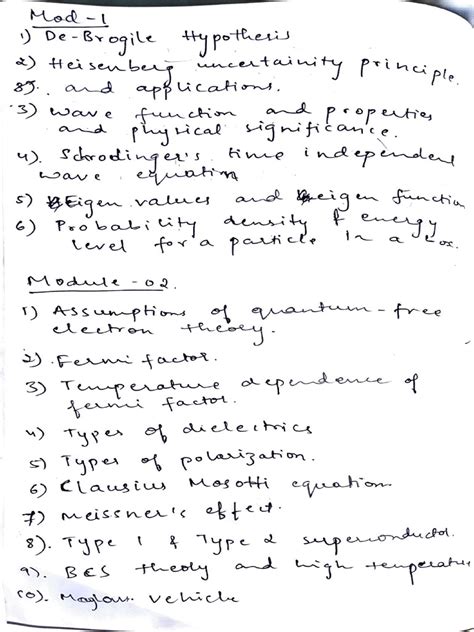 Mod-1
1) De-Brogile Hypothesis
2) Heisenberg uncertainity principle.
and applications.
3) wave function and properties
and physical significance.
4). Schrodinger's time independent
wave equation
5) Eigen values and eigen function
6) Probability density & energy
level for a particle In a box.
Module-02.
1) Assumptions of quantum-free
electron theory.
2). Fermi factor.
3) Temperature dependence of
fermi factor.
4) Types of dielectrics
5) Types of polarization.
6) Clausius Mosotti equation
7) Meissner's effect.
8). Type 1 & Type 2 superconductor.
9). BCS theory and high temperature
10). Maglous vehicle